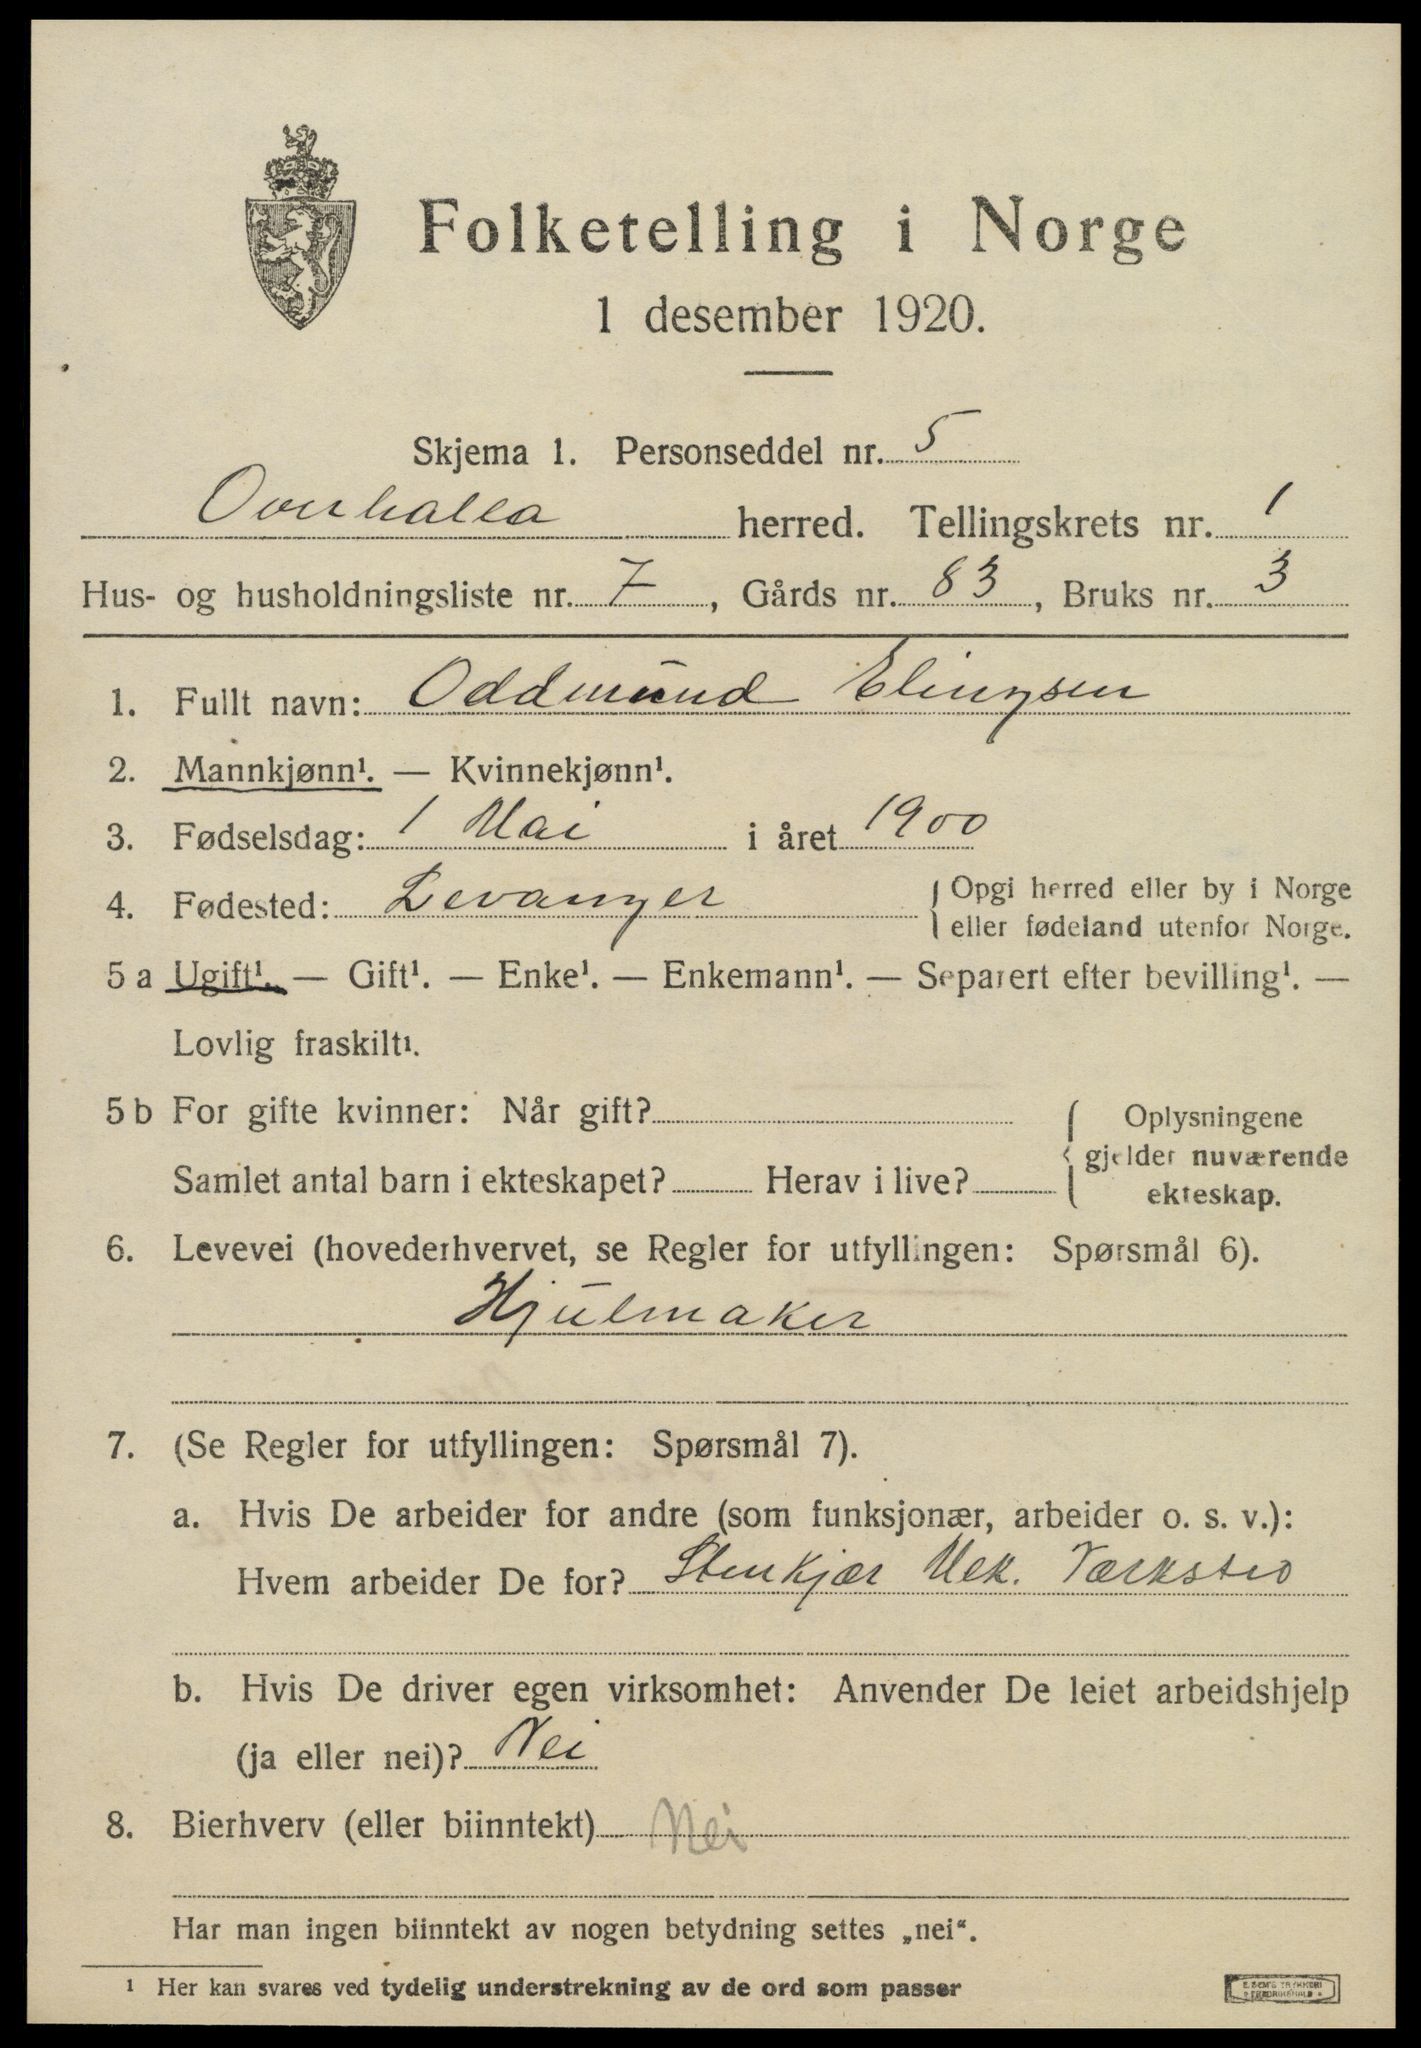 Folketelling i Norge
1 desember 1920.
Skjema 1. Personseddel nr. 5
Overhalla herred. Tellingskrets nr. 1
Hus- og husholdningsliste nr. 7, Gårds nr. 83, Bruks nr. 3
1. Fullt navn: Oddmund Elingsen
2. Mannkjønn¹. — Kvinnekjønn¹.
3. Fødselsdag: 1 Mai i året 1900
4. Fødested: Levanger { Opgi herred eller by i Norge
eller fødeland utenfor Norge.
5 a Ugift¹. — Gift¹. — Enke¹. — Enkemann¹. — Separert efter bevilling¹. —
Lovlig fraskilt¹.
5 b For gifte kvinner: Når gift? { Oplysningene
gjelder nuværende
Samlet antal barn i ekteskapet? Herav i live?
ekteskap.
6. Levevei (hovederhvervet, se Regler for utfyllingen: Spørsmål 6).
Hjulmaker
7. (Se Regler for utfyllingen: Spørsmål 7).
a. Hvis De arbeider for andre (som funksjonær, arbeider o. s. v.):
Hvem arbeider De for? Stenkjær Mek. Værksted
b. Hvis De driver egen virksomhet: Anvender De leiet arbeidshjelp
(ja eller nei)? Nei
8. Bierhverv (eller biinntekt) Nei
Har man ingen biinntekt av nogen betydning settes „nei“.
¹ Her kan svares ved tydelig understrekning av de ord som passer